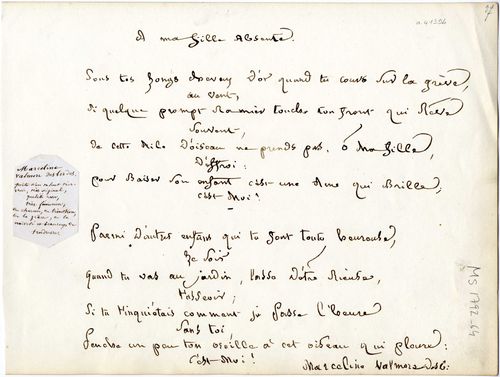 A ma fille Absente.
Sous tes longs cheveux D'or quand tu cours sur la grève,
au vent,
Si quelque prompt Ramier touche ton front qui Rêve
Souvent,
De cette Aile D'oiseau ne prends pas, ô Ma fille,
D'effroi:
pour Baiser son enfant c'est une Ame qui Brille;
c'est Moi!
Parmi D'autres enfans qui te font toute heureuse,
Le soir
Quand tu vas au jardin, lasse D'être Rieuse,
T'asseoir;
Si tu t'inquiétais comment je passe l'heure
Sans toi,
Penche un peu ton oreille à cet oiseau qui pleure:
C'est Moi!
Marceline Valmore
Marceline
Valmore
très
MS 1792_64